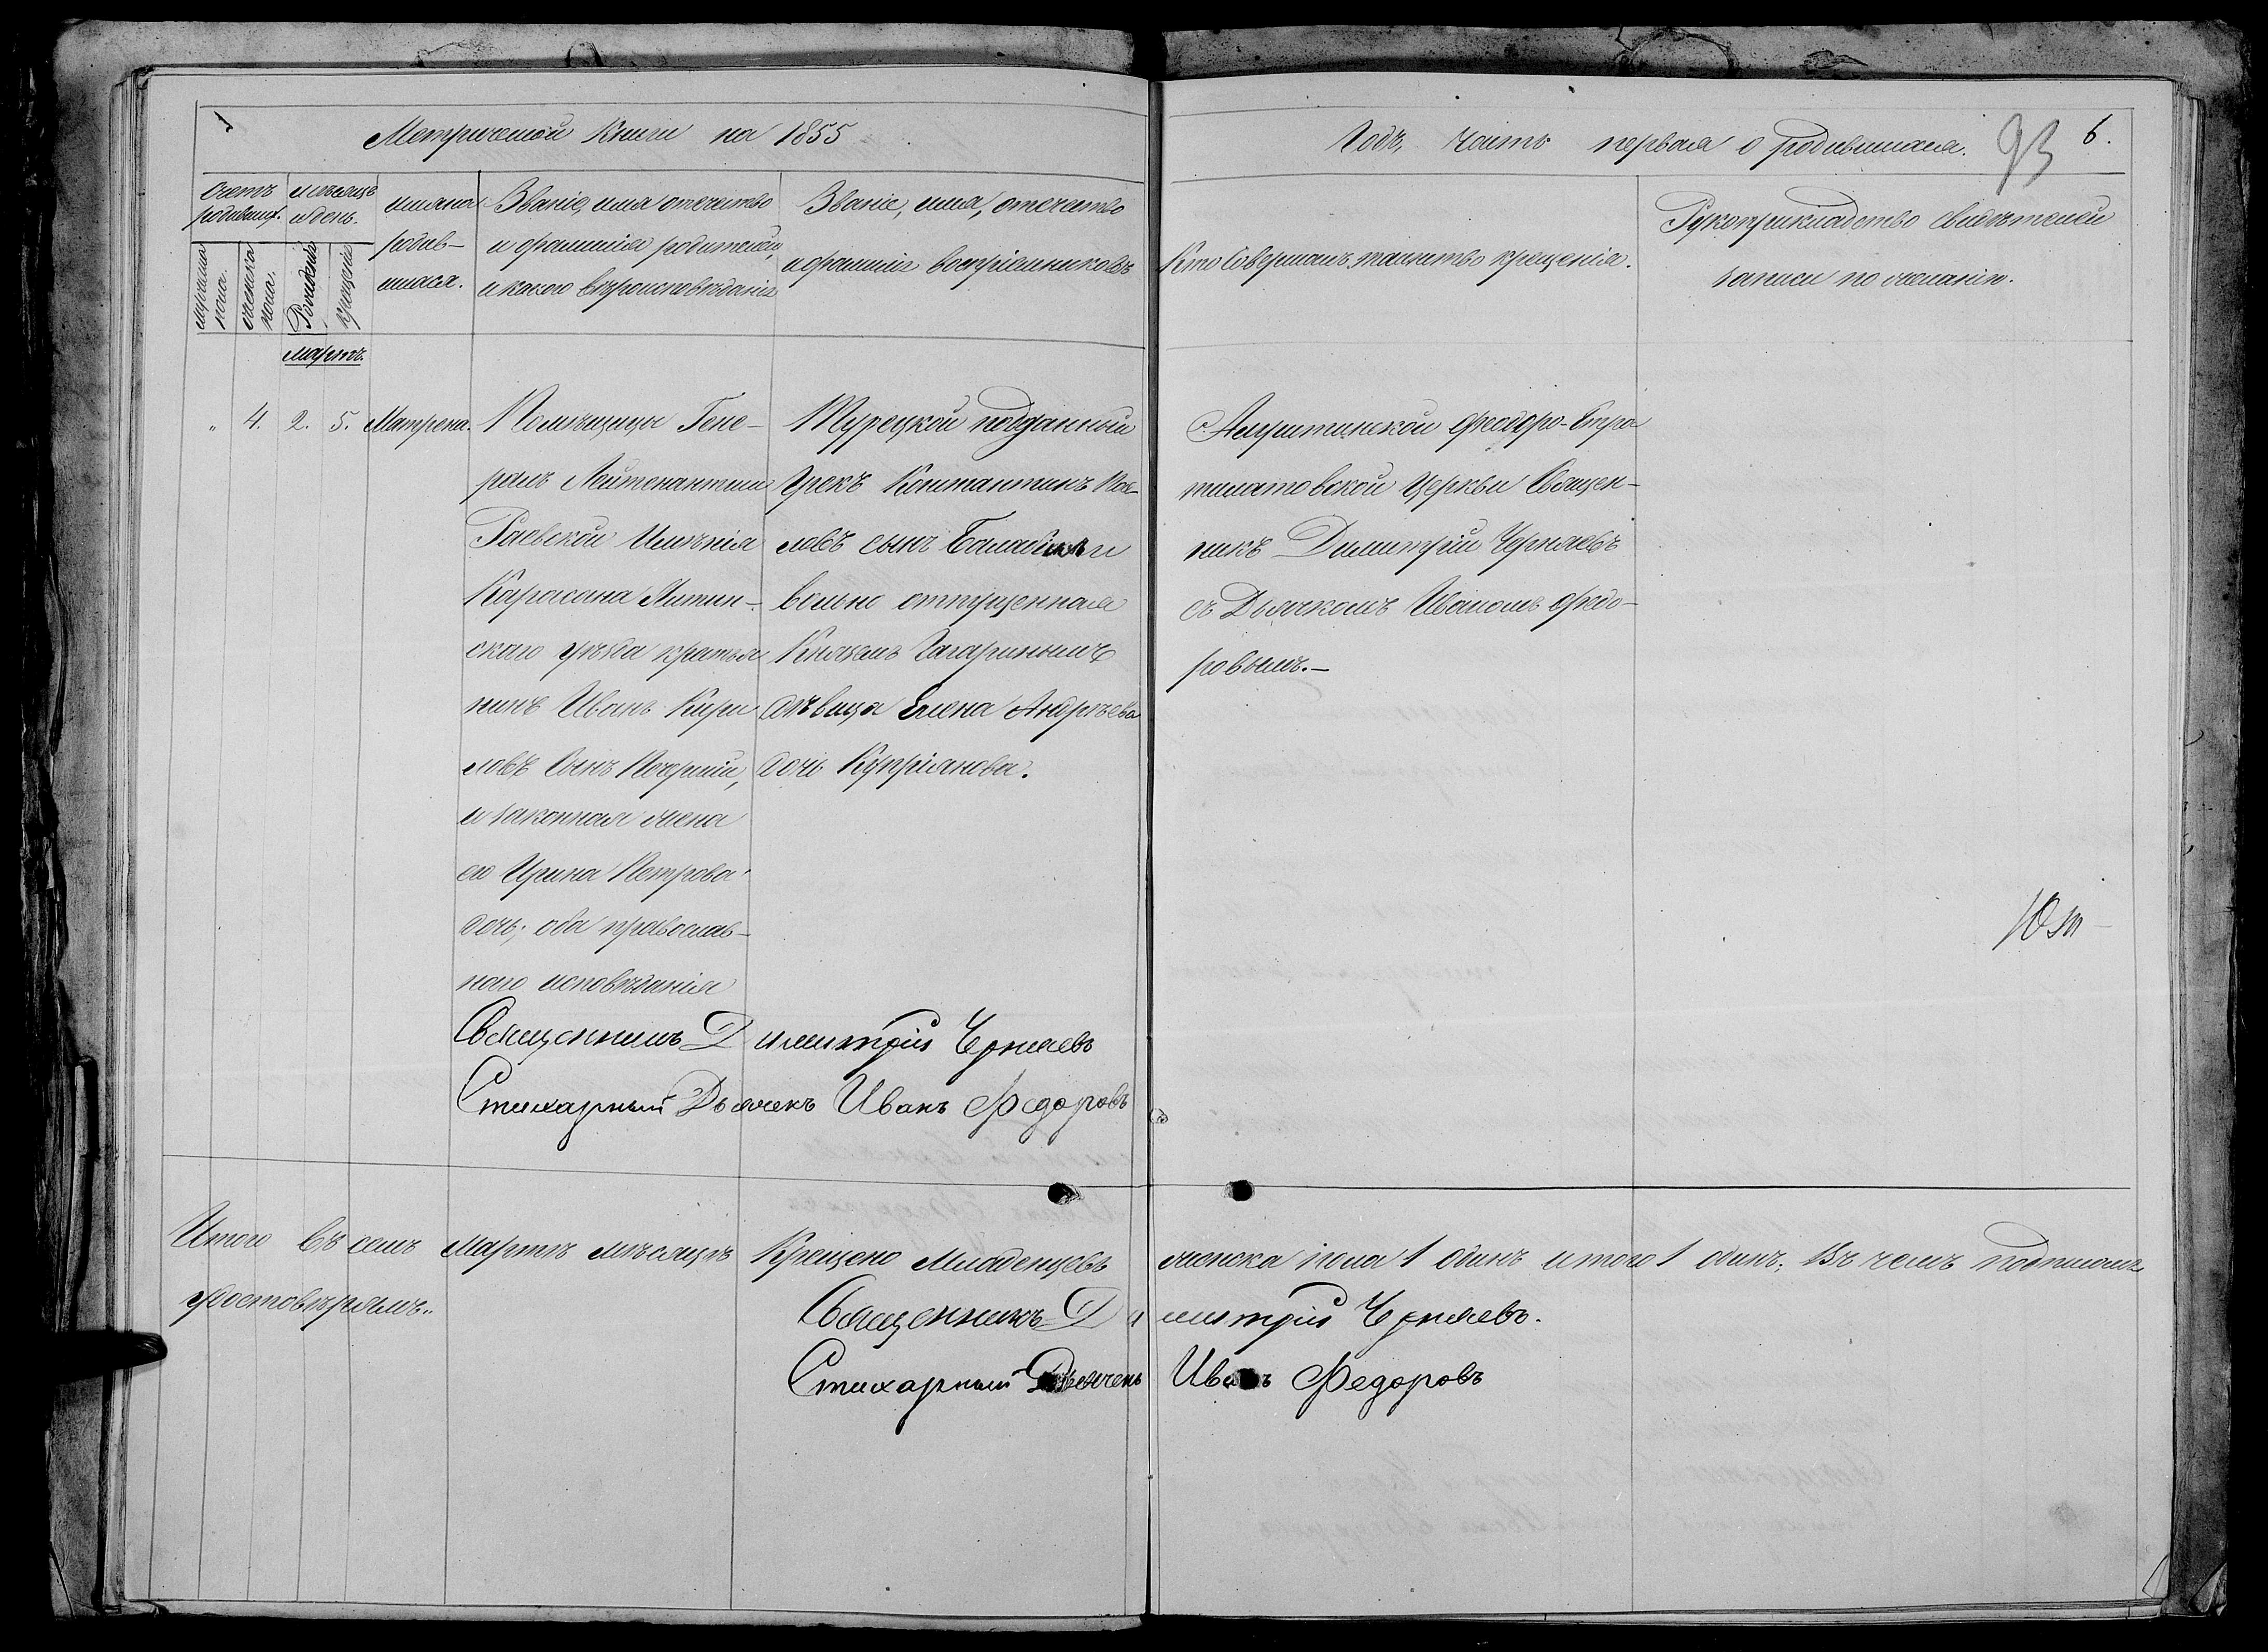 Метрической Книги на 1855
Годъ, часть первая о родившихся.
93
6.
Счетъ
родивших.
мѣсяцъ
и день.
мужеска
пола.
женска
пола.
Рожденія
Крещенія
имяна
родив-
шихся.
Званіе, имя отечество
и фамилія родителей,
и какого вѣроисповѣданія
Званіе, имя, отечество
и фамилія воспріемниковъ
Кто совершалъ таинство крещенія.
Рукоприкладство свидѣтелей
записи по желанію.
мартъ.
„ 4. 2. 5. Матрена.
Помѣщицы Гене-
ралъ Лейтенантши
Раевской Имѣнія
Карасана Ялтин-
скаго уѣзда крестья
нинъ Иванъ Кири
ловъ сынъ
и законная жена
его Ирина Петрова
дочь; оба православ-
наго исповѣданія
Турецкой подданный
Грекъ Константинъ Пав-
ловъ сынъ
вольно отпущенная
Княземъ Гагаринымъ
дѣвица Елена Андрѣева
дочь Купріянова.
Алуштинской Феодоро-Стра
тилатовской Церкви Священ-
никъ Димитрій Черняевъ
съ Дьячкомъ Иваномъ Федо-
ровымъ.—
Священникъ Димитрій Черняевъ
Стихарный Дьячекъ Иванъ Федоровъ
Итого въ семъ Мартѣ мѣсяцѣ Крещено Младенцевъ женска пола 1 одинъ итого 1 одинъ; Въ чемъ подписомъ
удостовѣряемъ..
Священникъ Димитрій Черняевъ.
Стихарный Дьячекъ Иванъ Федоровъ